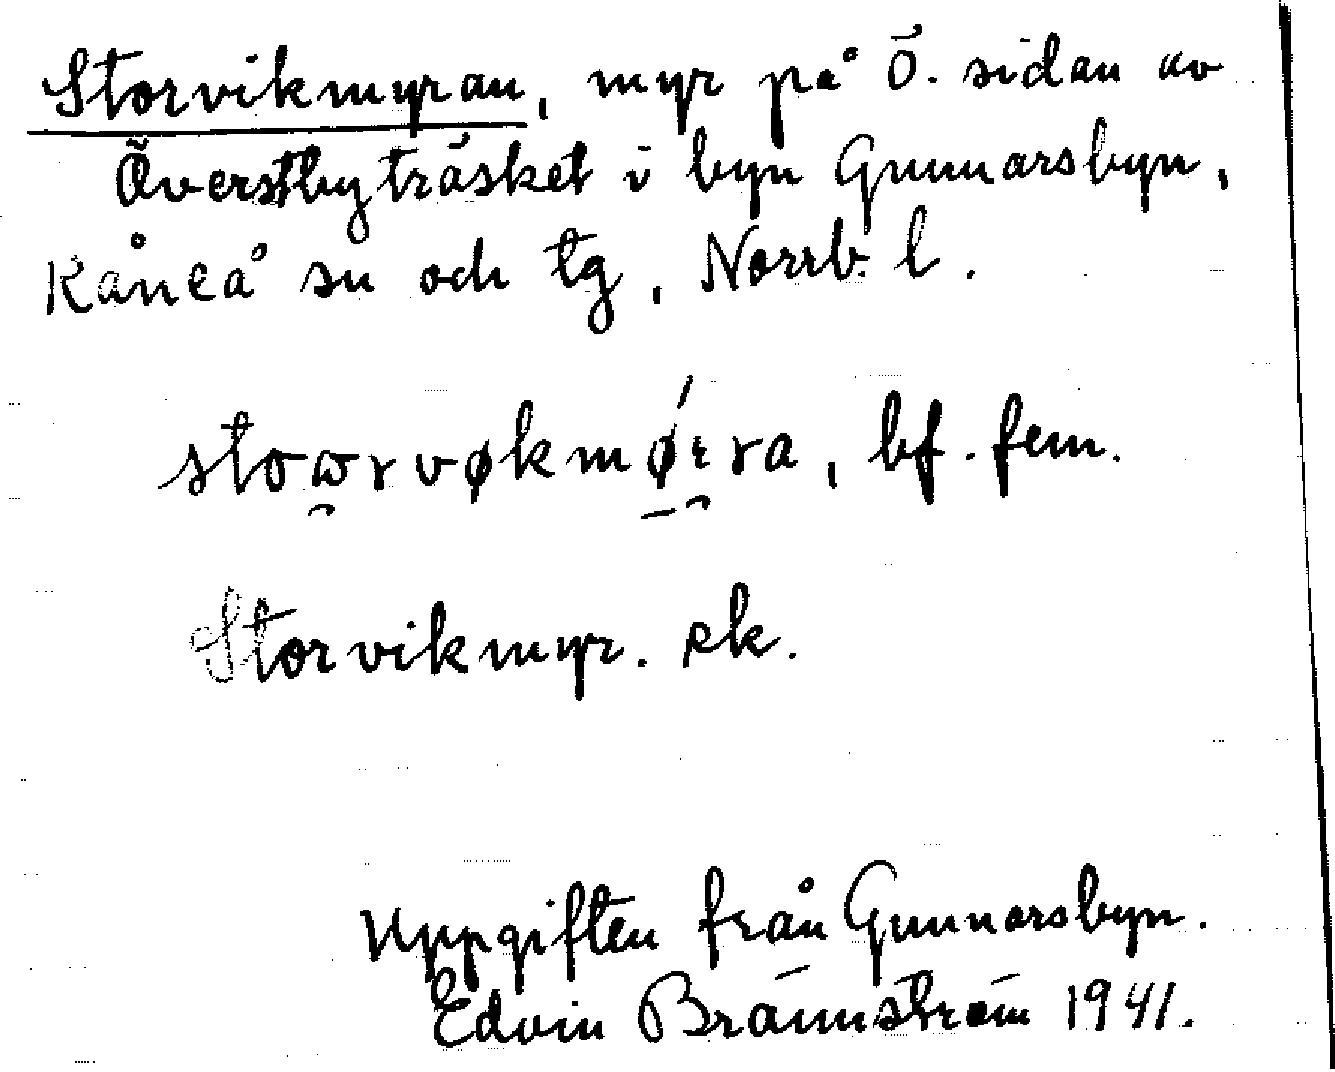 Storvikmyran, myr på Ö. sidan av
Överstbyträsket i byn Gunnarsbyn,
Råneå sn och tg, Norrb. l.
bf. fem.
Storvikmyr. ek.
Uppgiften från Gunnarsbyn.
Edvin Brännström 1941.